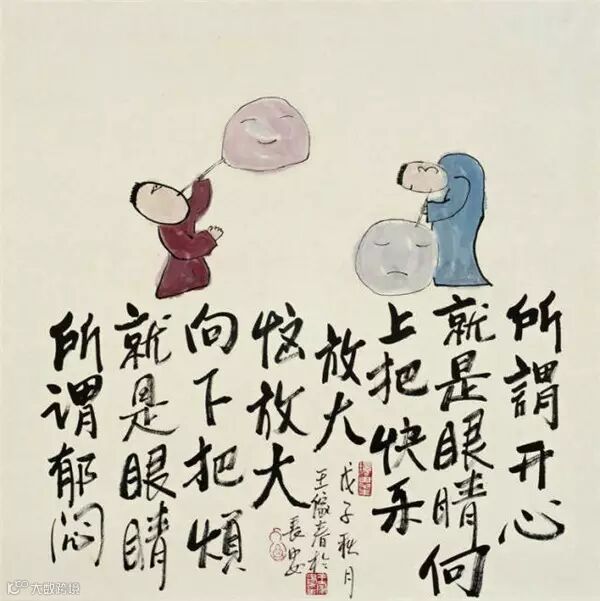 所謂开心
就是眼睛向
上把快乐
放大
所谓郁闷
就是眼睛
向下把煩
恼放大
戊子秋月
長安
大数跨境